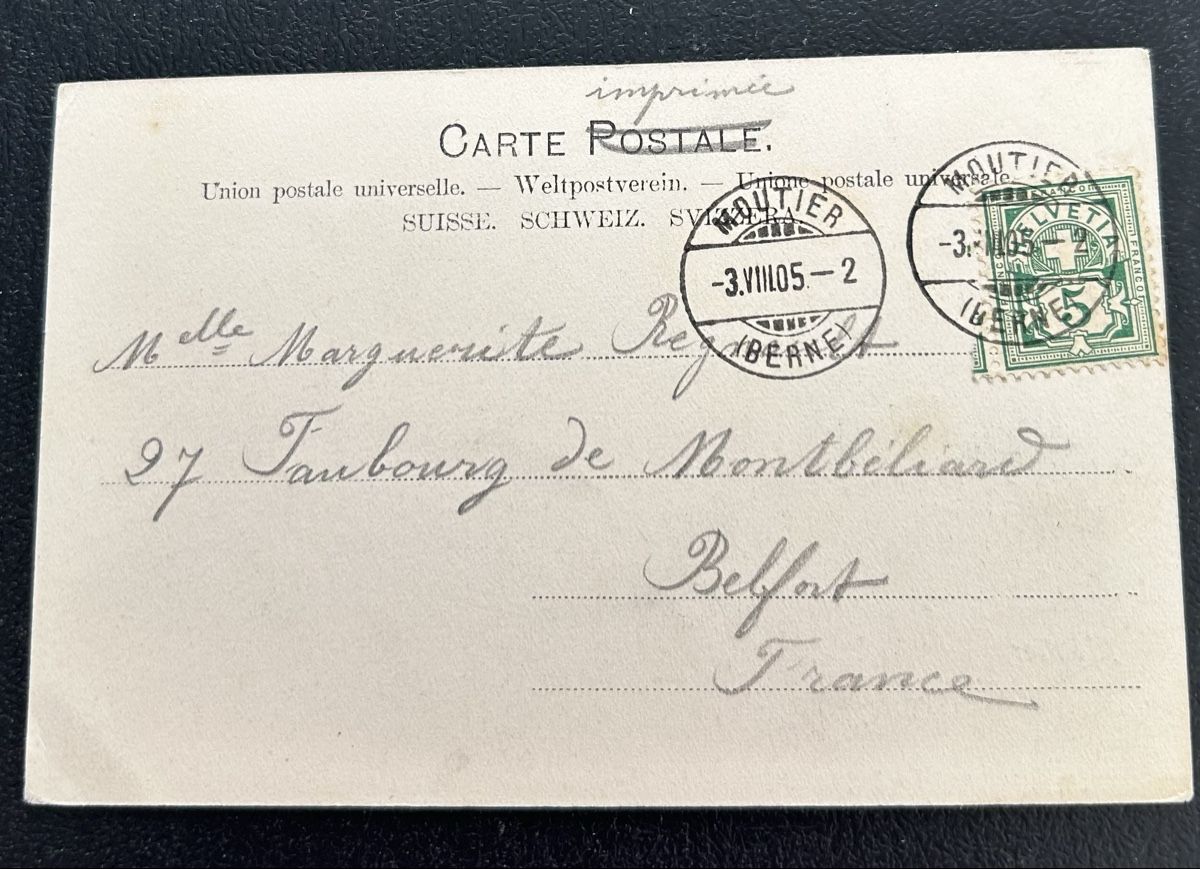 imprimée
CARTE POSTALE.
Union postale universelle. — Weltpostverein. — Unione postale universale.
SUISSE. SCHWEIZ. SVIZZERA.
MOUTIER
-3.VIII.05.-2
(BERNE)
MOUTIER
-3.VIII.05-2
(BERNE)
HELVETIA
FRANCO
5
Melle Marguerite
27 Faubourg de Montbéliard
Belfort
France